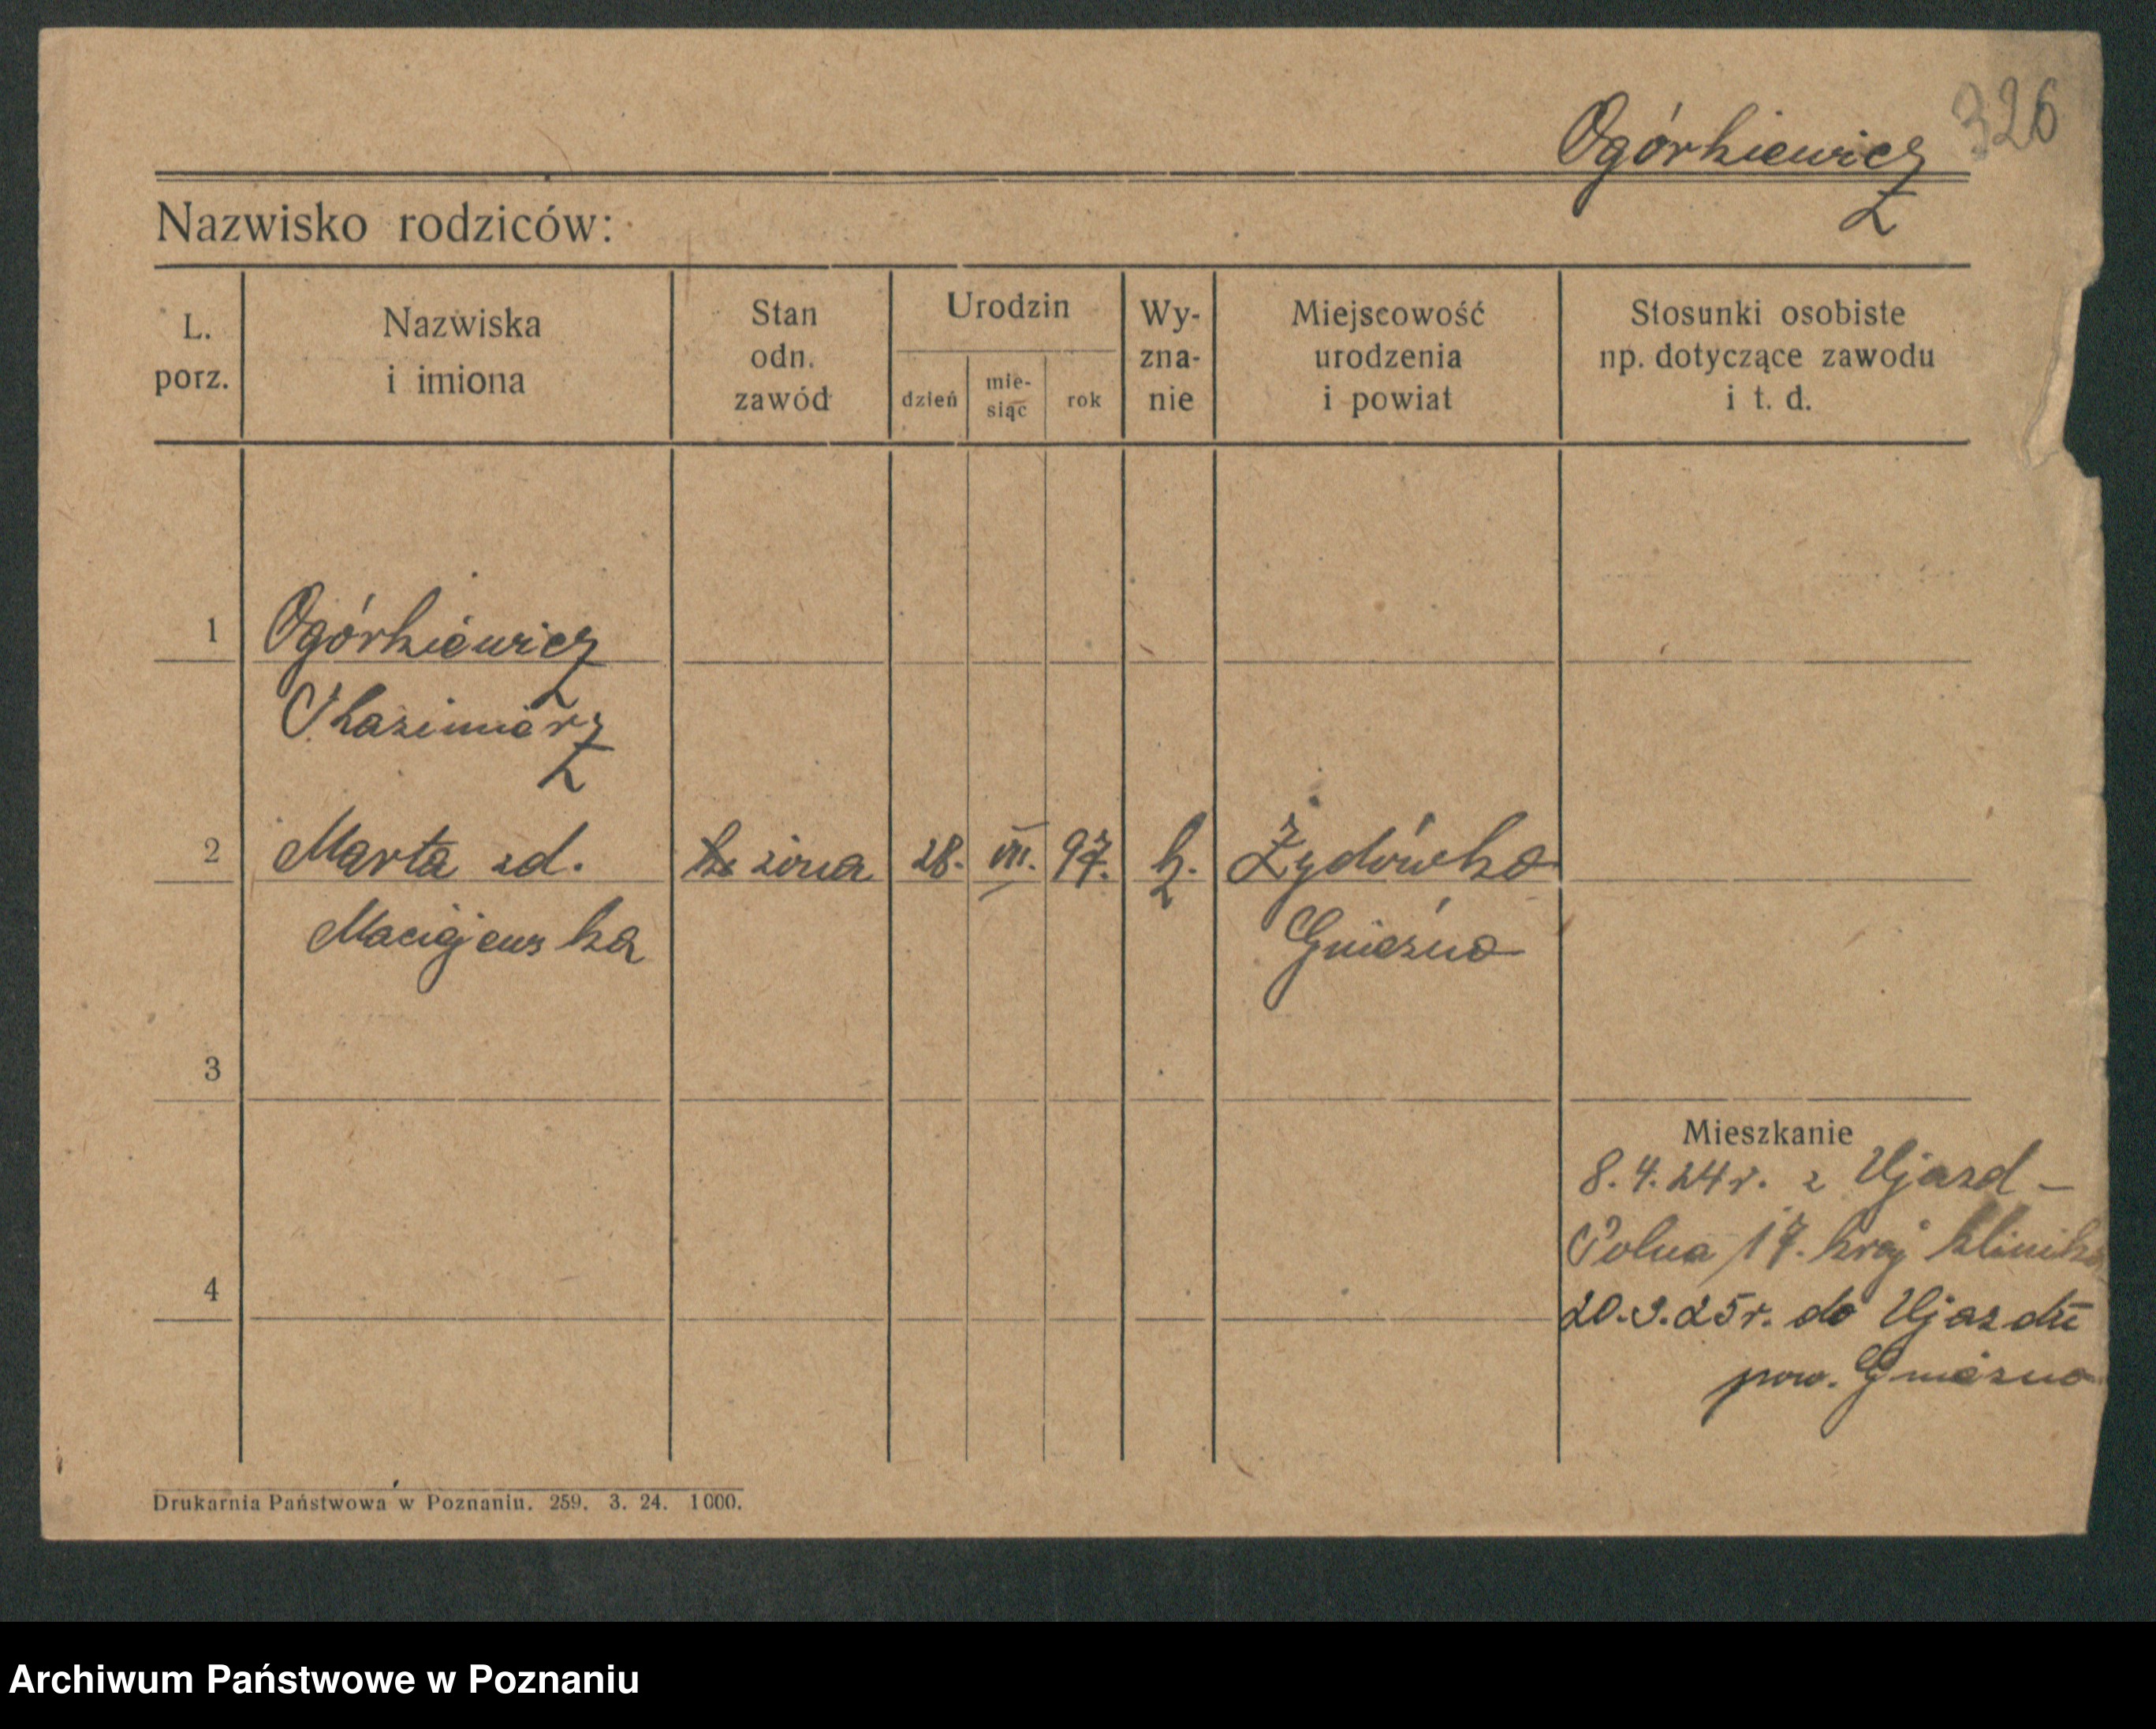 326
Ogórkiewicz
Nazwisko rodziców:
L. porz.
Nazwiska i imiona
Stan odn. zawód
Urodzin
dzień
mie-
siąc
rok
Wy-
zna-
nie
Miejscowość
urodzenia
i powiat
Stosunki osobiste
np. dotyczące zawodu
i t. d.
1 Ogórkiewicz
Kazimierz
2 Marta zd. żona 28. VII. 97. k. Żydówko
Maciejewska Gniezno
3
Mieszkanie
8.4.24r. z Ujazd -
Polna 17. kraj klinika
4
20.3.25r. do Ujazdu
pow. Gniezno
Drukarnia Państwowa w Poznaniu. 259. 3. 24. 1000.
Archiwum Państwowe w Poznaniu